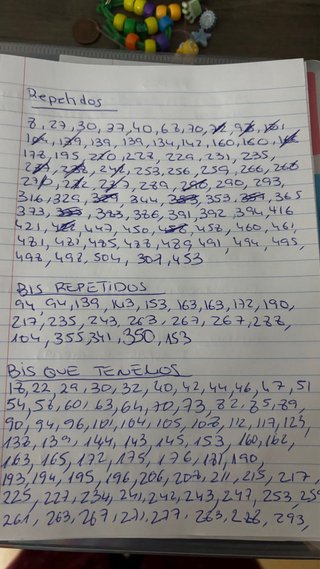 Repetidos
8, 27, 30, 37, 40, 62, 70,
139, 139, 134, 142, 160, 160,
178, 195, 210, 228, 229, 231, 235,
253, 256, 259, 266, 268
289, 290, 293,
316, 329, 344, 353, 365
373, 383, 386, 391, 392, 394, 416
421, 447, 450, 458, 460, 461
481, 482, 485, 488, 489, 491, 494, 495,
498, 498, 504, 307, 453
BIS REPETIDOS
94, 94, 139, 143, 153, 163, 163, 172, 190,
217, 235, 243, 263, 267, 267, 288,
104, 355, 341, 350, 153
BIS QUE TENEMOS
18, 22, 29, 30, 32, 40, 42, 44, 46, 47, 51
54, 58, 60, 63, 64, 70, 73, 82, 85, 89,
90, 94, 96, 102, 104, 105, 108, 112, 117, 123,
138, 139, 144, 143, 145, 153, 160, 162,
163, 165, 172, 175, 176, 181, 190,
193, 194, 195, 196, 206, 207, 211, 215, 217,
225, 227, 234, 241, 242, 243, 247, 253, 259
261, 263, 267, 271, 277, 283, 288, 293,